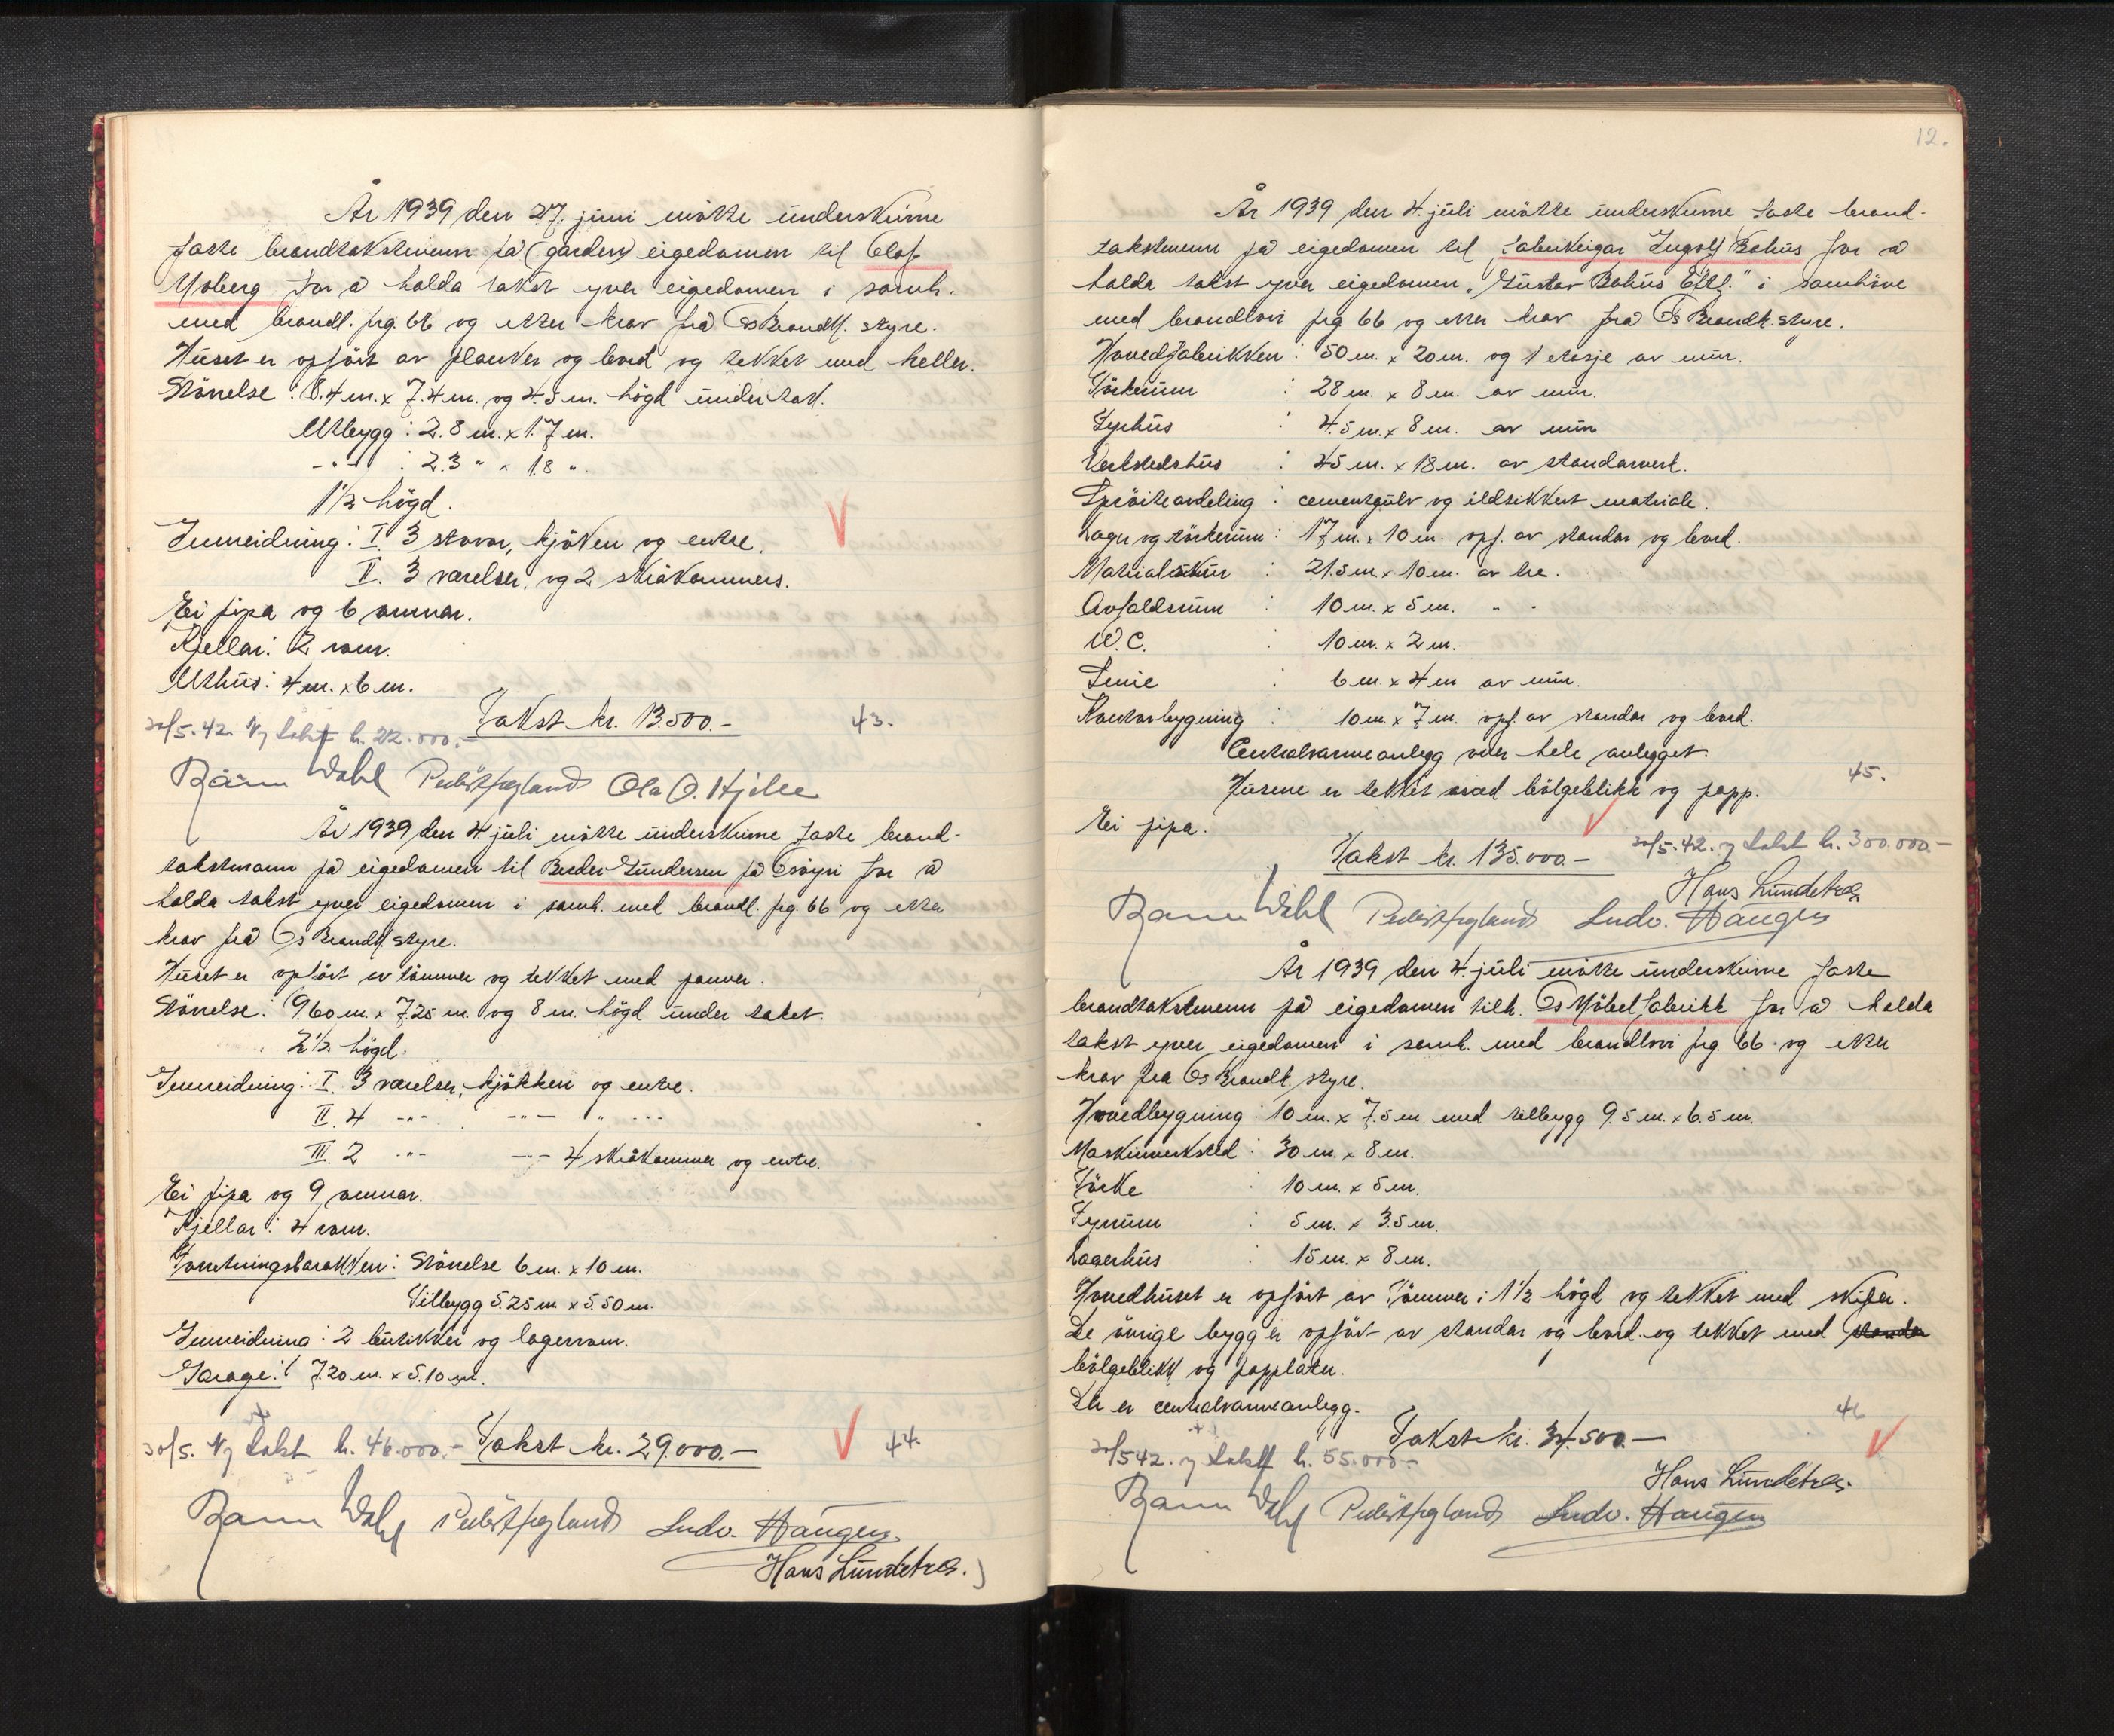 År 1939 den 27. juni møtte underskrivne
faste brandtakstmenn på (garden) eigedomen til Olaf
Moberg for å halda takst yver eigedomen i samh.
med brandl. prg. 66 og etter krav frå Os Brandk. styre.
Huset er opført av planker og bord og tekket med heller.
Störrelse: 8.4 m. x 7.4 m. og 4.5 m. högd under tak.
Utbygg: 2.8 m. x 1.7 m.
-"- : 2.3 " x 1.8 ".
1½ högd.
Innreidning: I. 3 stover, kjöken og entre.
II. 3 værelser, og 2 skråkammers.
Ei pipa og 6 omnar.
Kjellar: 2 rom.
Uthus: 4 m. x 6 m.
Takst kr. 13.500.-
43.
30/5.42. Ny takst kr. 22.000.-
Wahl Ola O. Hjelle
År 1939 den 4 juli møtte underskrivne faste brand-
takstmenn på eigedomen til Peder Gundersen på Osöyri for å
halda takst yver eigedomen i samh. med brandl. prg. 66 og etter
krav frå Os Brandk. styre.
Huset er opfört av tömmer og tekket med panner.
Störrelse: 9.60 m. x 7.25 m. og 8 m. högd under taket.
2½ högd.
Innreidning: I. 3 værelser, kjökken og entre.
II. 4 -"- -"- " -"-
III. 2 -"- -"- 4 skråkammer og entre.
Ei pipa og 9 omnar.
Kjellar: 4 rom.
Forretningsbarakken: Störrelse 6 m. x 10 m.
Tilbygg 5.25 m x 5.50 m.
Innreidning: 2 butikker og lagerrom.
Garage: 7.20 m. x 5.10 m.
30/5. Ny takst kr. 46.000.- Takst kr. 29.000.-
44.
Wahl Ludv. Haugen
Hans Lundetræ.
12.
År 1939 den 4. juli møtte underskrivne faste brand-
takstmenn på eigedomen til fabrikeigar Ingolf Bahus for å
halda takst yver eigedomen „Gustav Bahus Eftf." i samhöve
med brandlovi prg 66 og etter krav frå Os Brandk. styre.
Hovedfabrikken: 50 m. x 20 m. og 1 etasje av mur.
Törkerum : 28 m. x 8 m. av mur.
Fyrhus : 4.5 m. x 8 m. av mur
Verkstedshus : 45 m. x 18 m. av standarverk.
Spröiteavdeling : cementgulv og ildsikkert materiale.
Lager og törkerum : 17 m. x 10 m. opf. av standar og bord.
Materialskur : 21.5 m. x 10 m. av tre.
Avfaldsrum : 10 m. x 5 m. " "
W.C. : 10 m. x 2 m.
Smie : 6 m x 4 m av mur.
Kontorbygning : 10 m. x 7 m. opf. av standar og bord.
Centralvarmeanlegg over hele anlegget.
Husene er tekket med bölgeblikk og papp.
45.
Ei pipa.
Takst kr. 135.000.-
30/5.42. ny takst kr. 300.000.-
Hans Lundetræ
Wahl Ludv. Haugen
År 1939 den 4. juli møtte underskrivne faste
brandtakstmenn på eigedomen tilh. Os Möbelfabrikk for å halda
takst yver eigedomen i samh. med brandlovi prg. 66 og etter
krav fra Os Brandk. styre.
Hovedbygning: 10 m. x 7.5 m. med tilbygg 9.5 m. x 6.5 m.
Maskinverksted: 30 m. x 8 m.
Törke : 10 m. x 5 m.
Fyrrum : 5 m. x 3.5 m.
Lagerhus : 15 m. x 8 m.
Hovedhuset er opfört av Tömmer i 1½ högd og tekket med skifer.
De övrige bygg er opfört av standar og bord og tekket med standar
bölgeblikk og papplater.
De er centralvarmeanlegg.
46
Takst kr. 34.500.-
30/5 42. ny takst kr. 55.000.-
Hans Lundetræ.
Wahl Ludv. Haugen